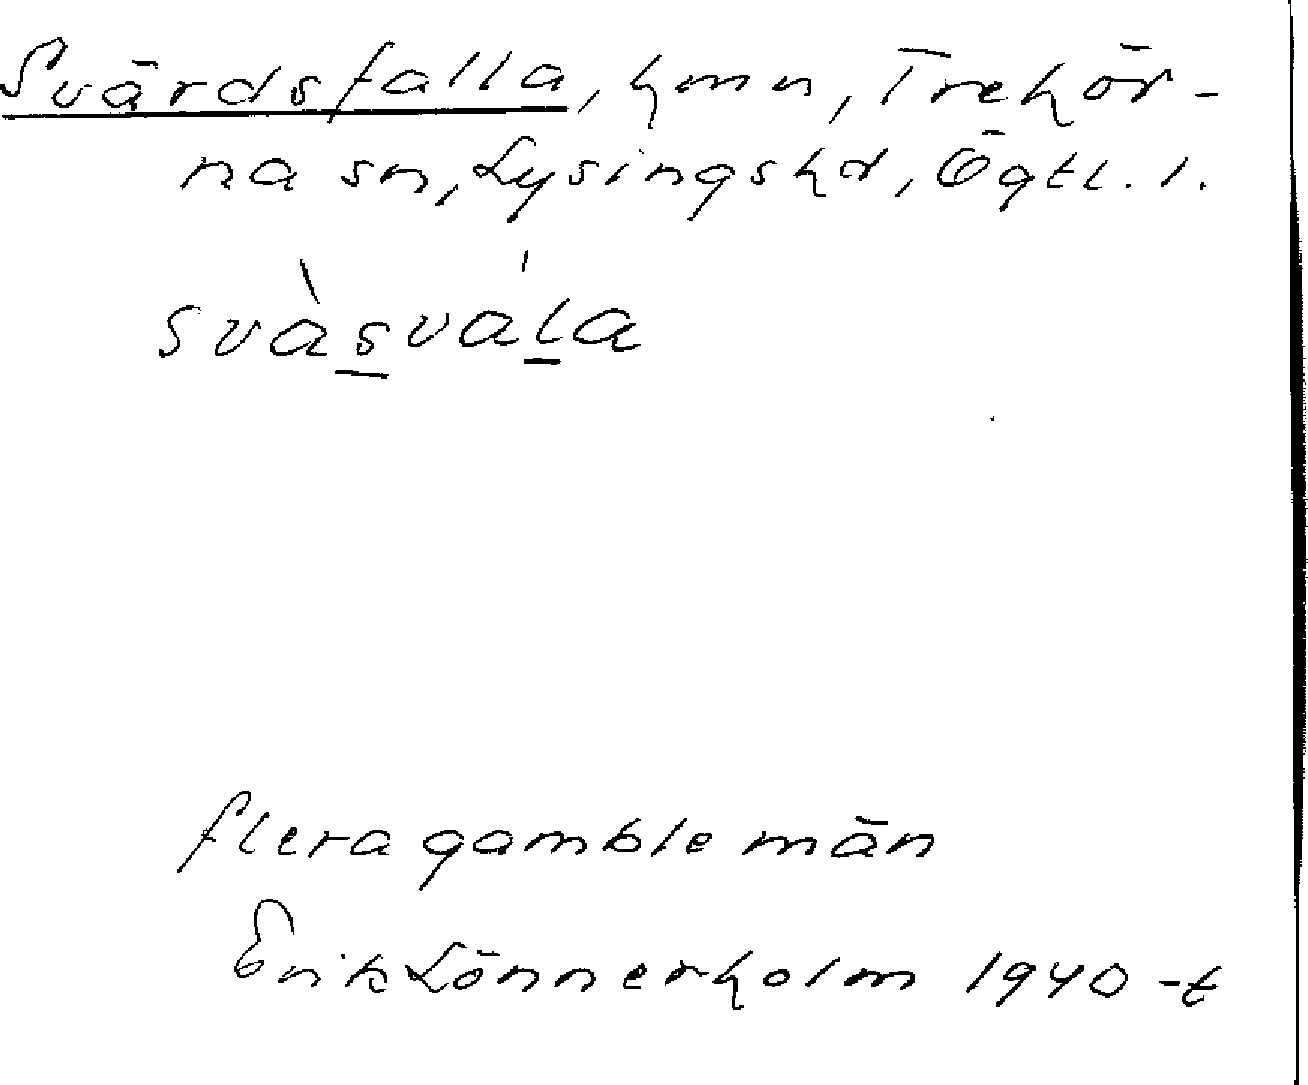 Svärdsfalla, hmn, Trehör-
na sn, Lysingshd, Ögtl. l.
svàsvála
flera gamble män
Erik Lönnerholm 1940-t